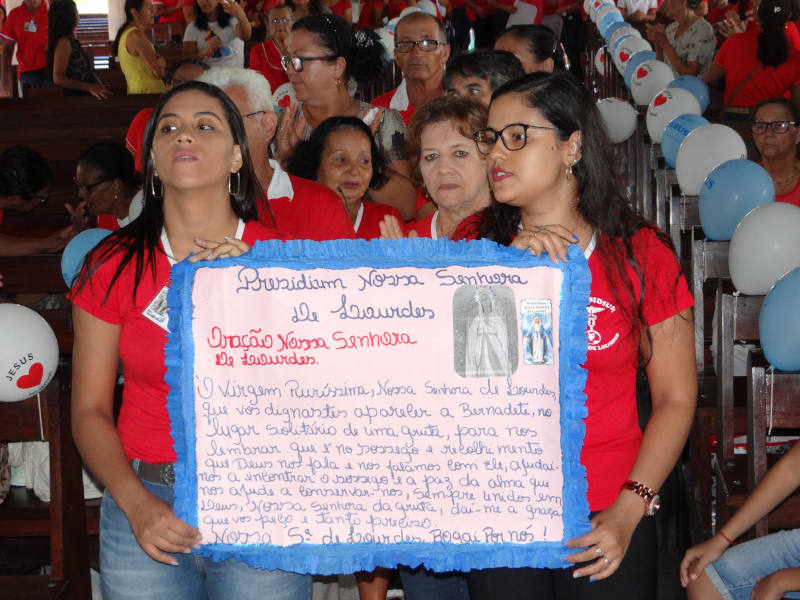 Presidium Nossa Senhora
De Lourdes
Oração Nossa Senhora
De Lourdes.
Ó Virgem Puríssima, Nossa Senhora de Lourdes,
que vos dignastes apareler a Bernadete, no
lugar solitário de uma gruta, para nos
lembrar que é no sossego e recolhimento
que Deus nos fala e nos falamos com Ele, ajudai-
nos a encontrar o sossego e a paz da alma que
nos ajude a conservar-nos, sempre unidos em
Deus, Nossa Senhora da gruta, dai-me a graça
que vos peço e tanto preciso.
Nossa Sª de Lourdes, Rogai Por nós!
JESUS
PRESIDIUM
DE LOURDES